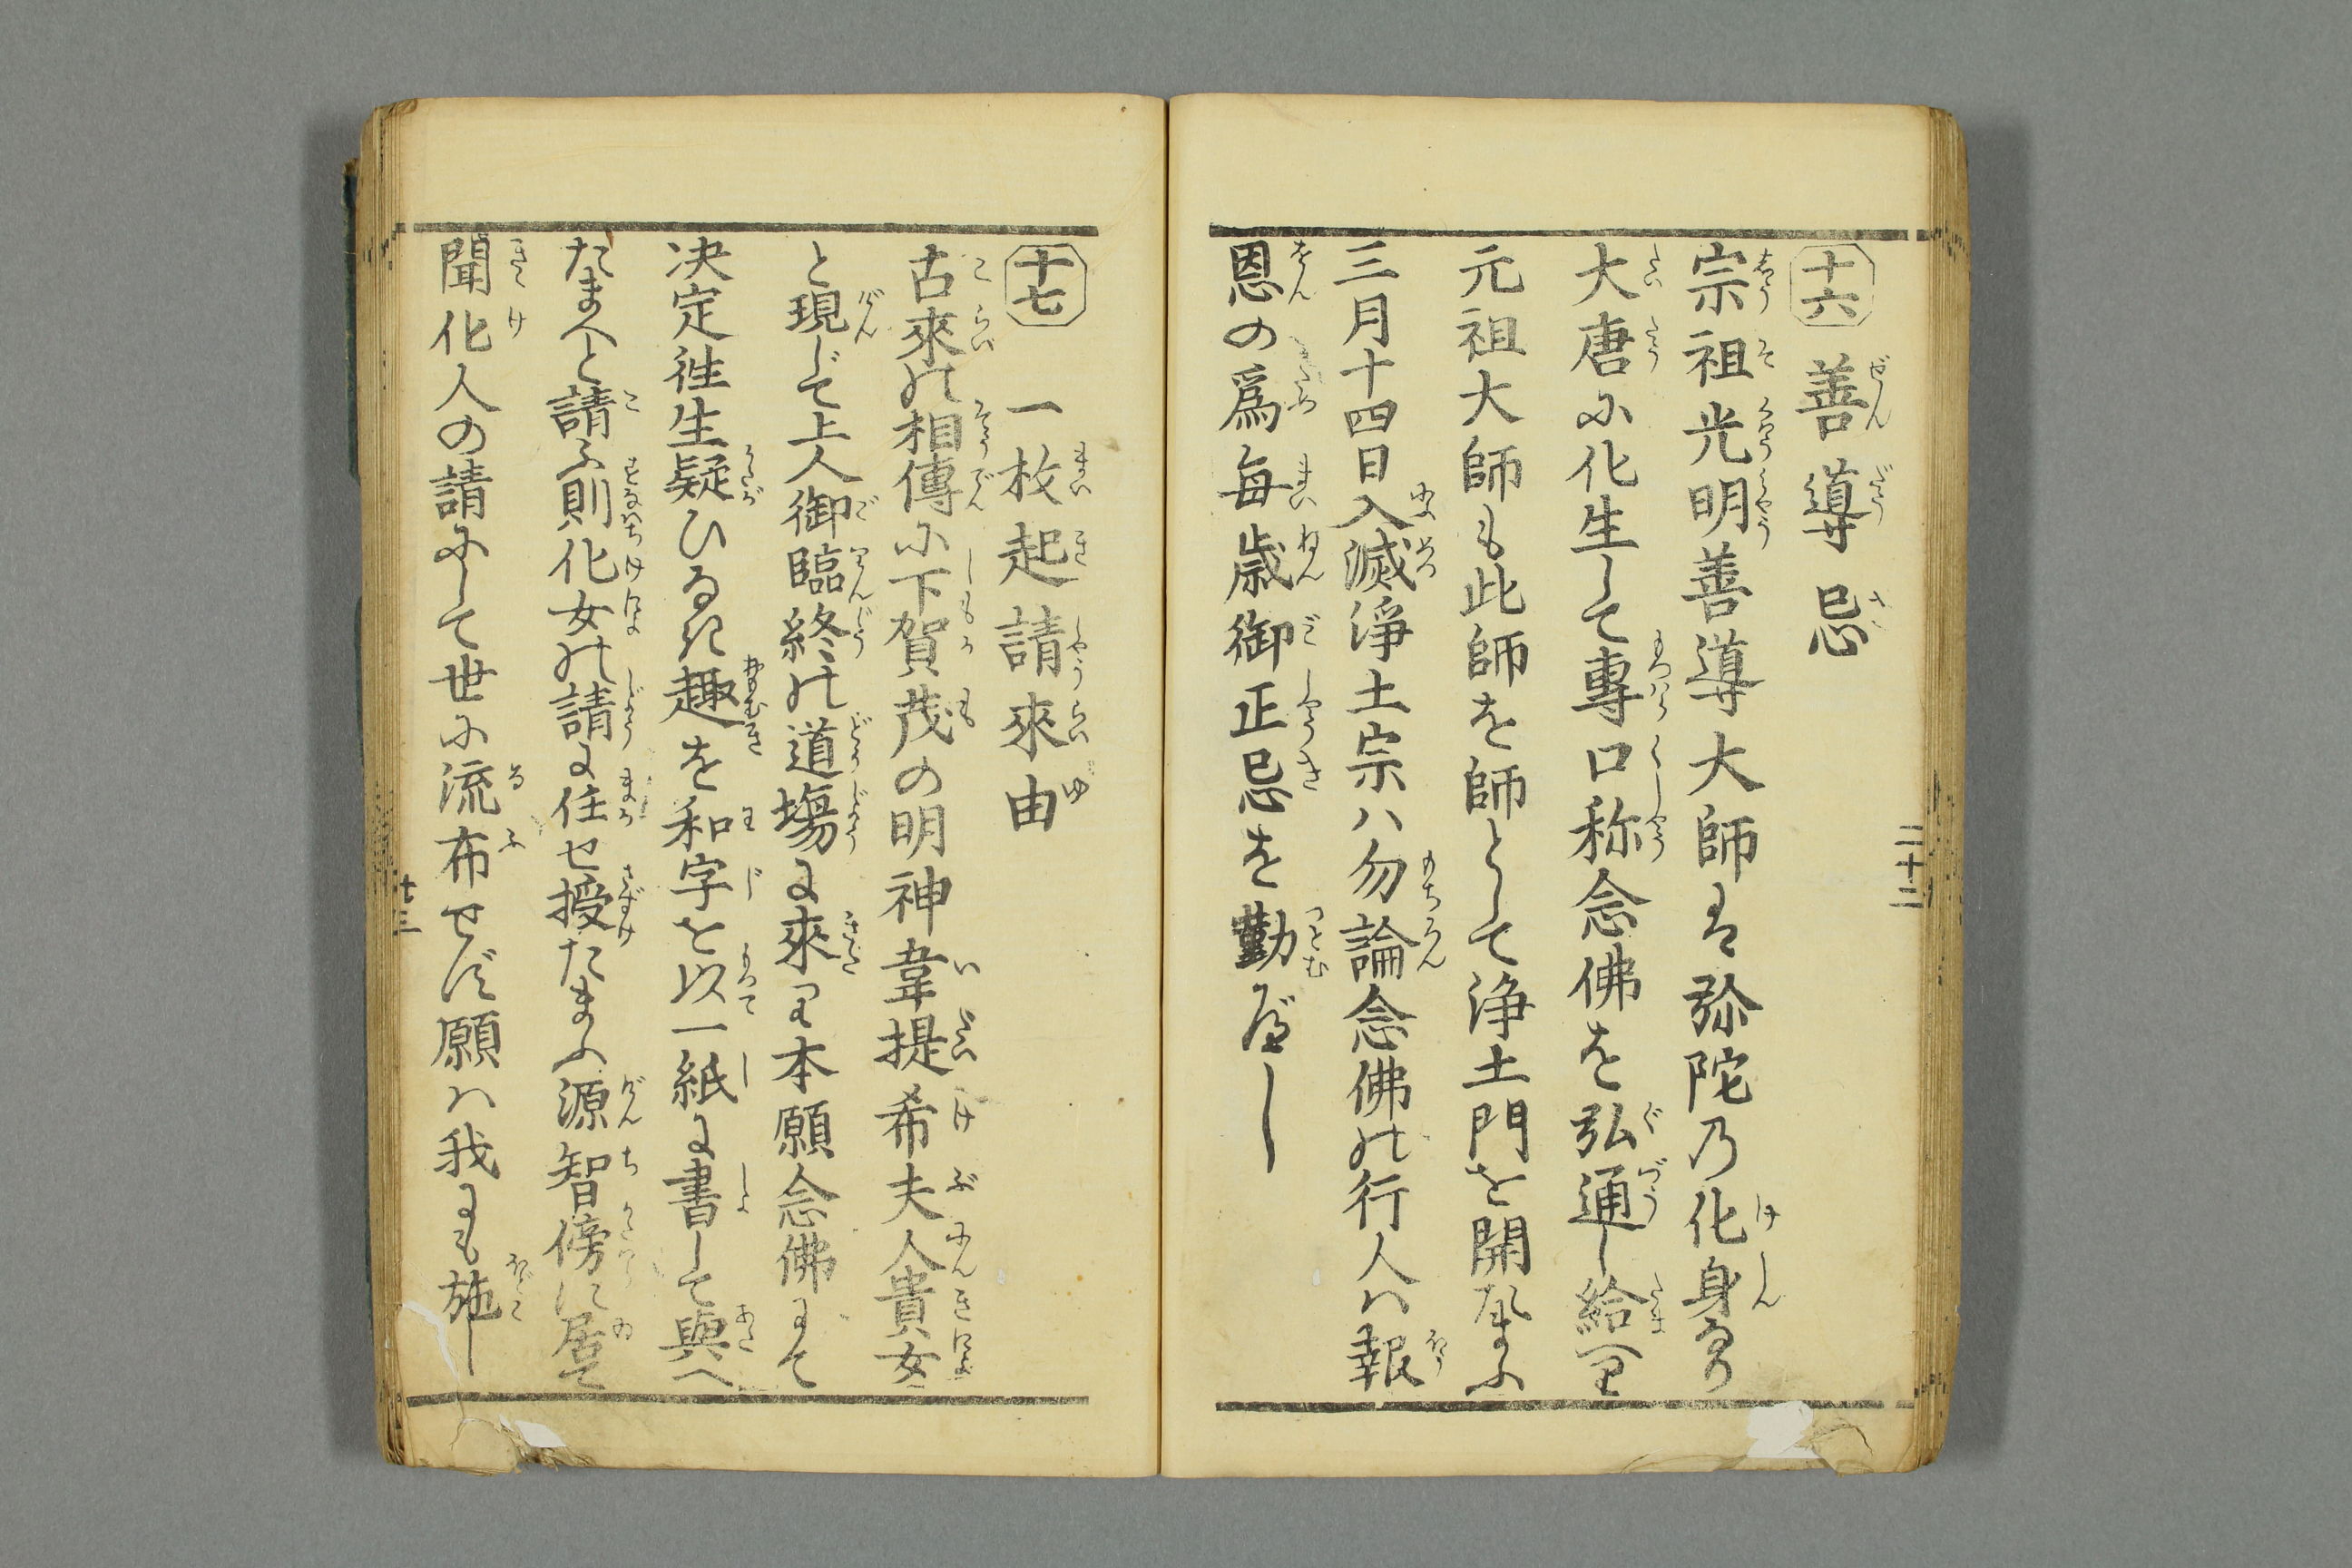 十六 善導忌
宗祖光明善導大師は弥陀乃化身なり
大唐に化生して專口称念佛を弘通し給へり
元祖大師も此師を師として浄土門を開たまふ
三月十四日入滅淨土宗ハ勿論念佛の行人ハ報
恩の爲毎歳御正忌を勤べし
二十二
十七 一枚起請來由
古來の相傳に下賀茂の明神韋提希夫人貴女
と現じて上人御臨終の道塲に來り本願念佛にて
决定徃生疑ひなき趣を和字を以一紙に書して與へ
たまへと請ふ則化女の請に任せ授たまふ源智傍に居て
聞化人の請にして世に流布せば願ハ我にも施し
廿三